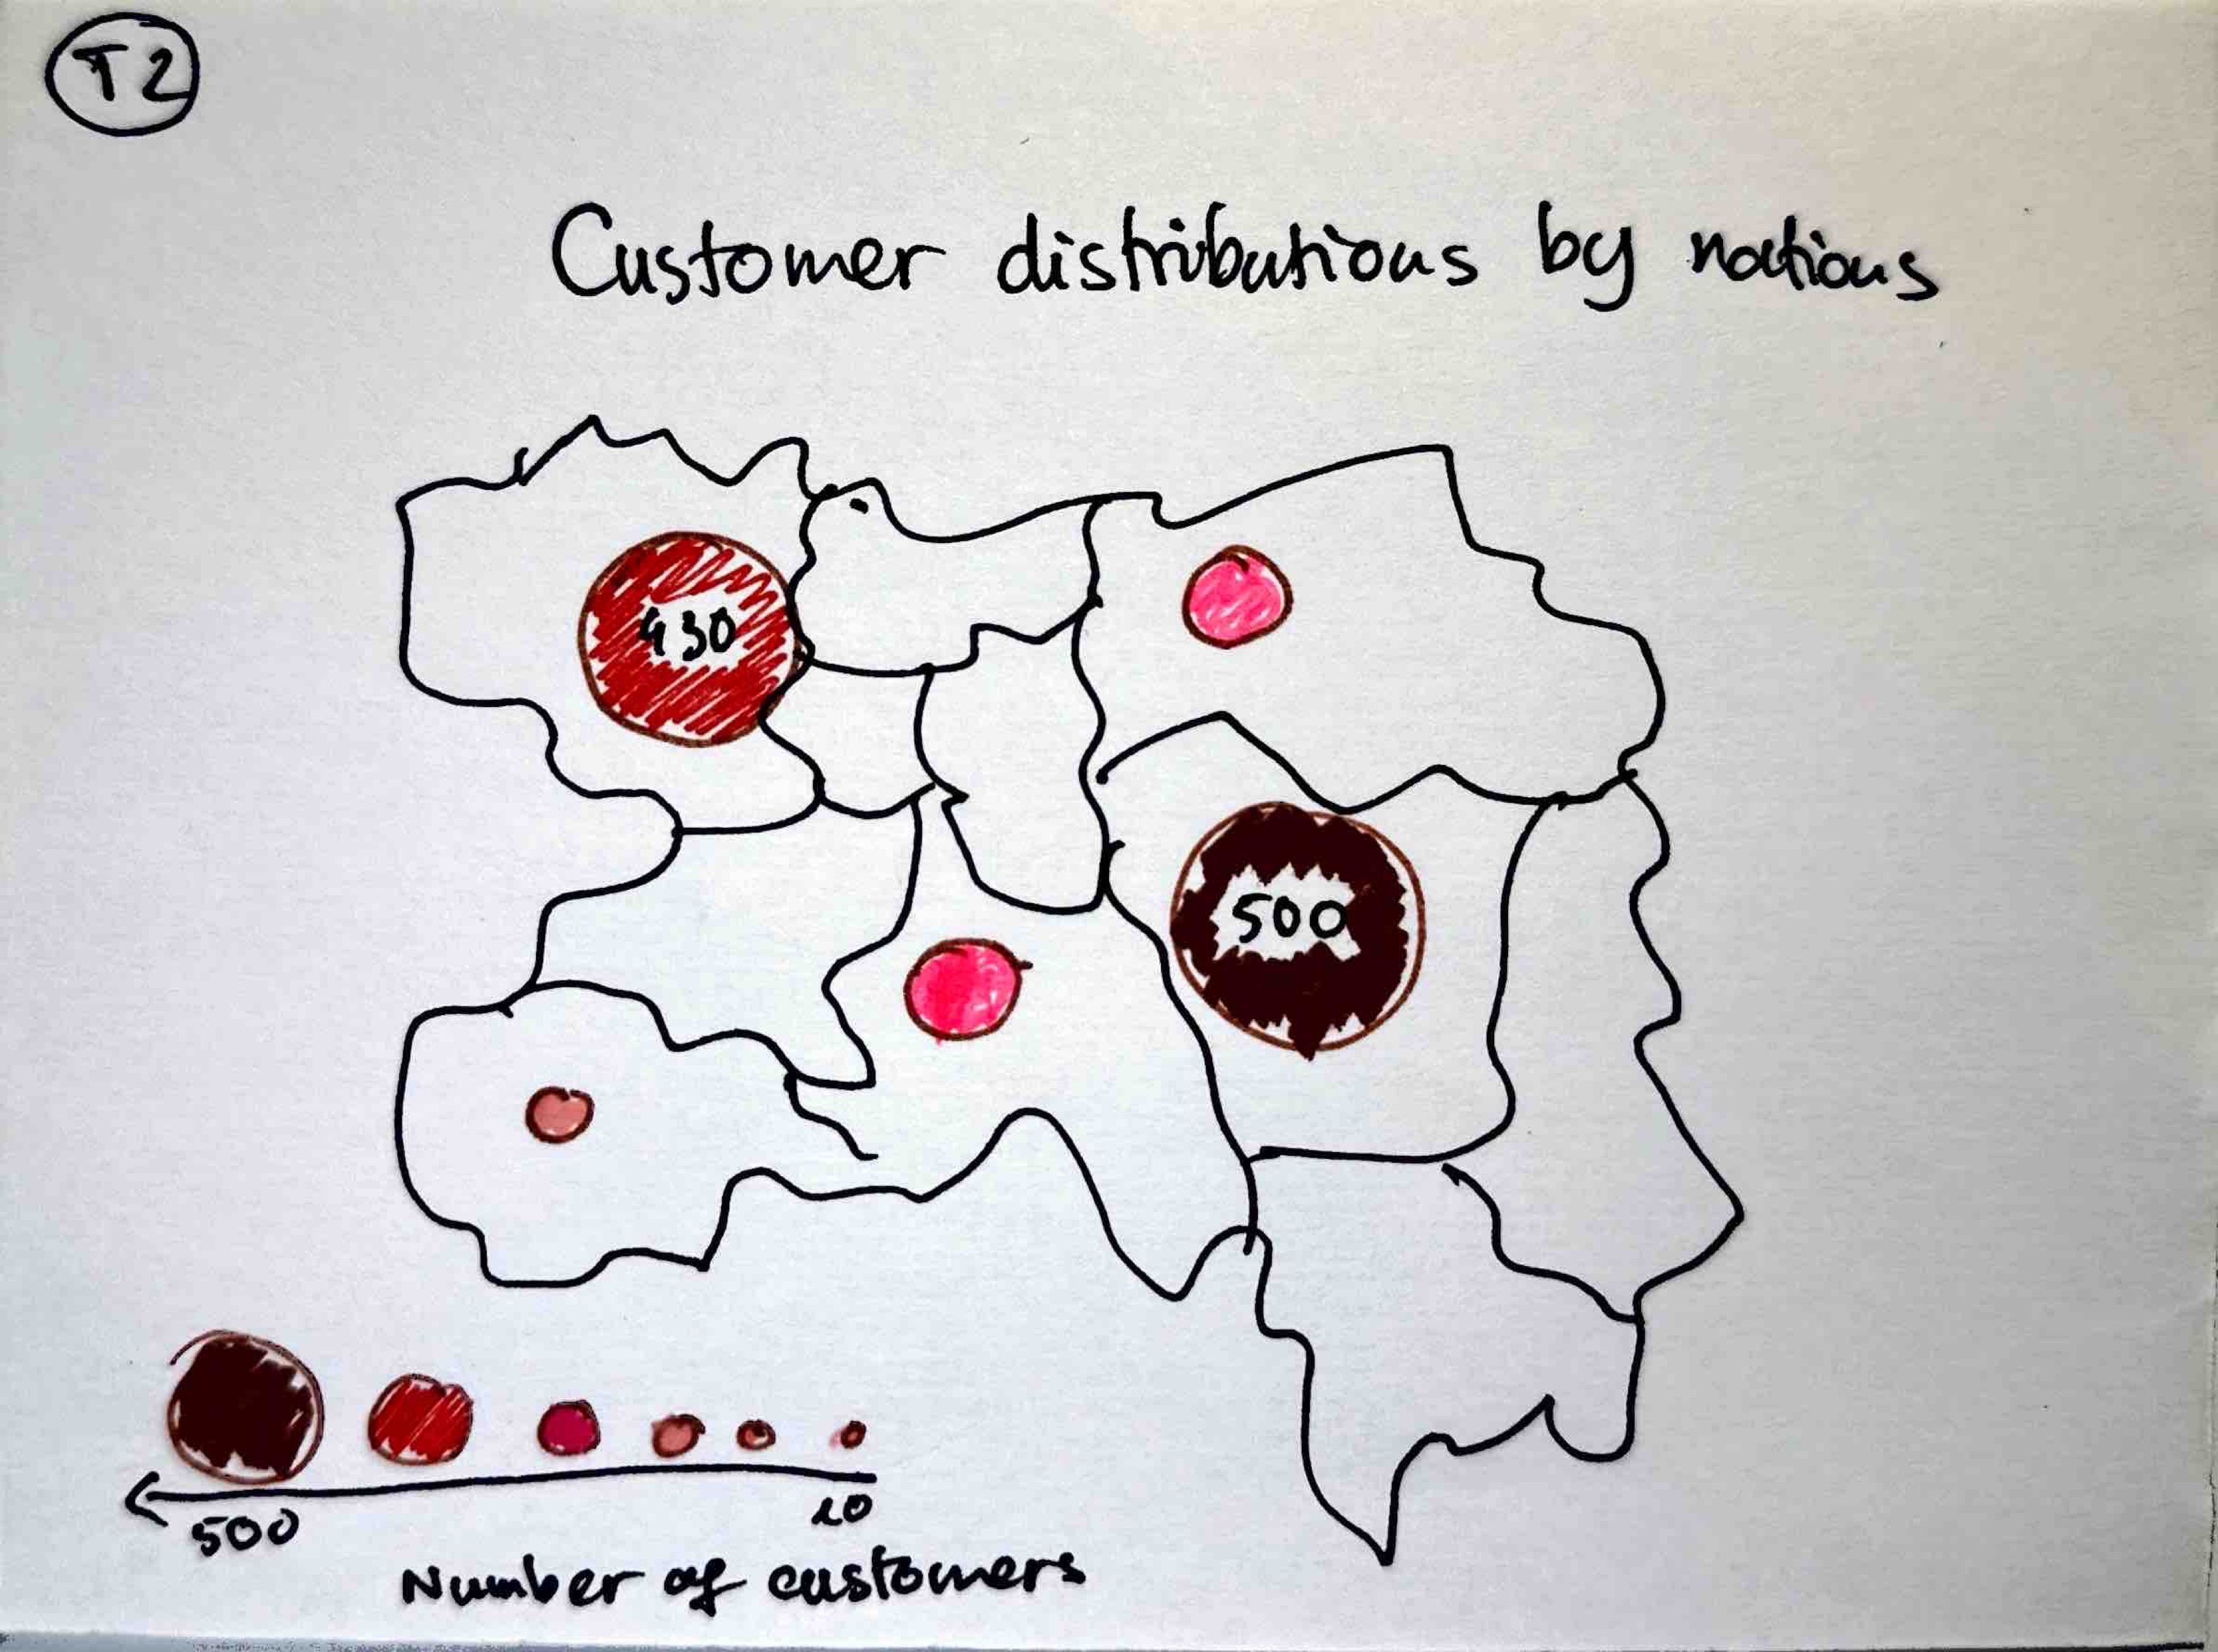 T2
Customer distributions by nations
430
500
500
10
Number of customers